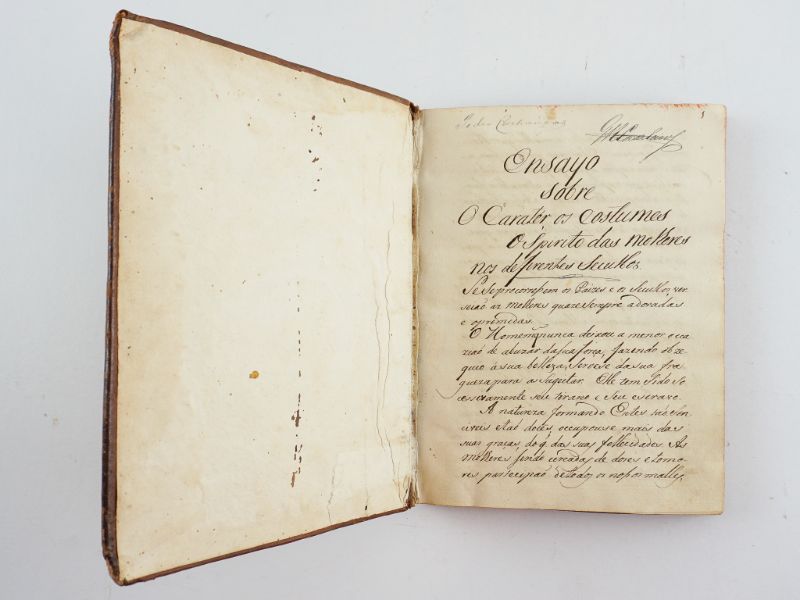 1
Ensayo
sobre
O Carater os costumes
O Spirito das molheres
nos defirentes Seculhos
Se Seprocorrem os Paizes e os Seculhos, ver
seião as molheres quaze sempre adoradas
e oprimidas.
O Homem nunca deixou a menor oca
zião de abuzar dasua força, fazendo obze
quio á sua belleza, servese da sua fra
queza para a sugeitar. Elle tem Sido Su
cessivamente seu tirano e Seu escravo.
A natureza formando Entes tão Sen
civeis e taõ doces, occupouse mais das
suas graças, do q. das suas fellecidades. As
molheres sendo cercadas de dores e temo
res participaõ de todos os nossos malles,